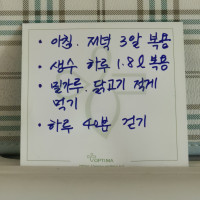 • 아침. 저녁 3알 복용
• 생수 하루 1.8ℓ 복용
• 밀가루. 닭고기 적게
먹기
• 하루 40분 걷기
OPTIMA